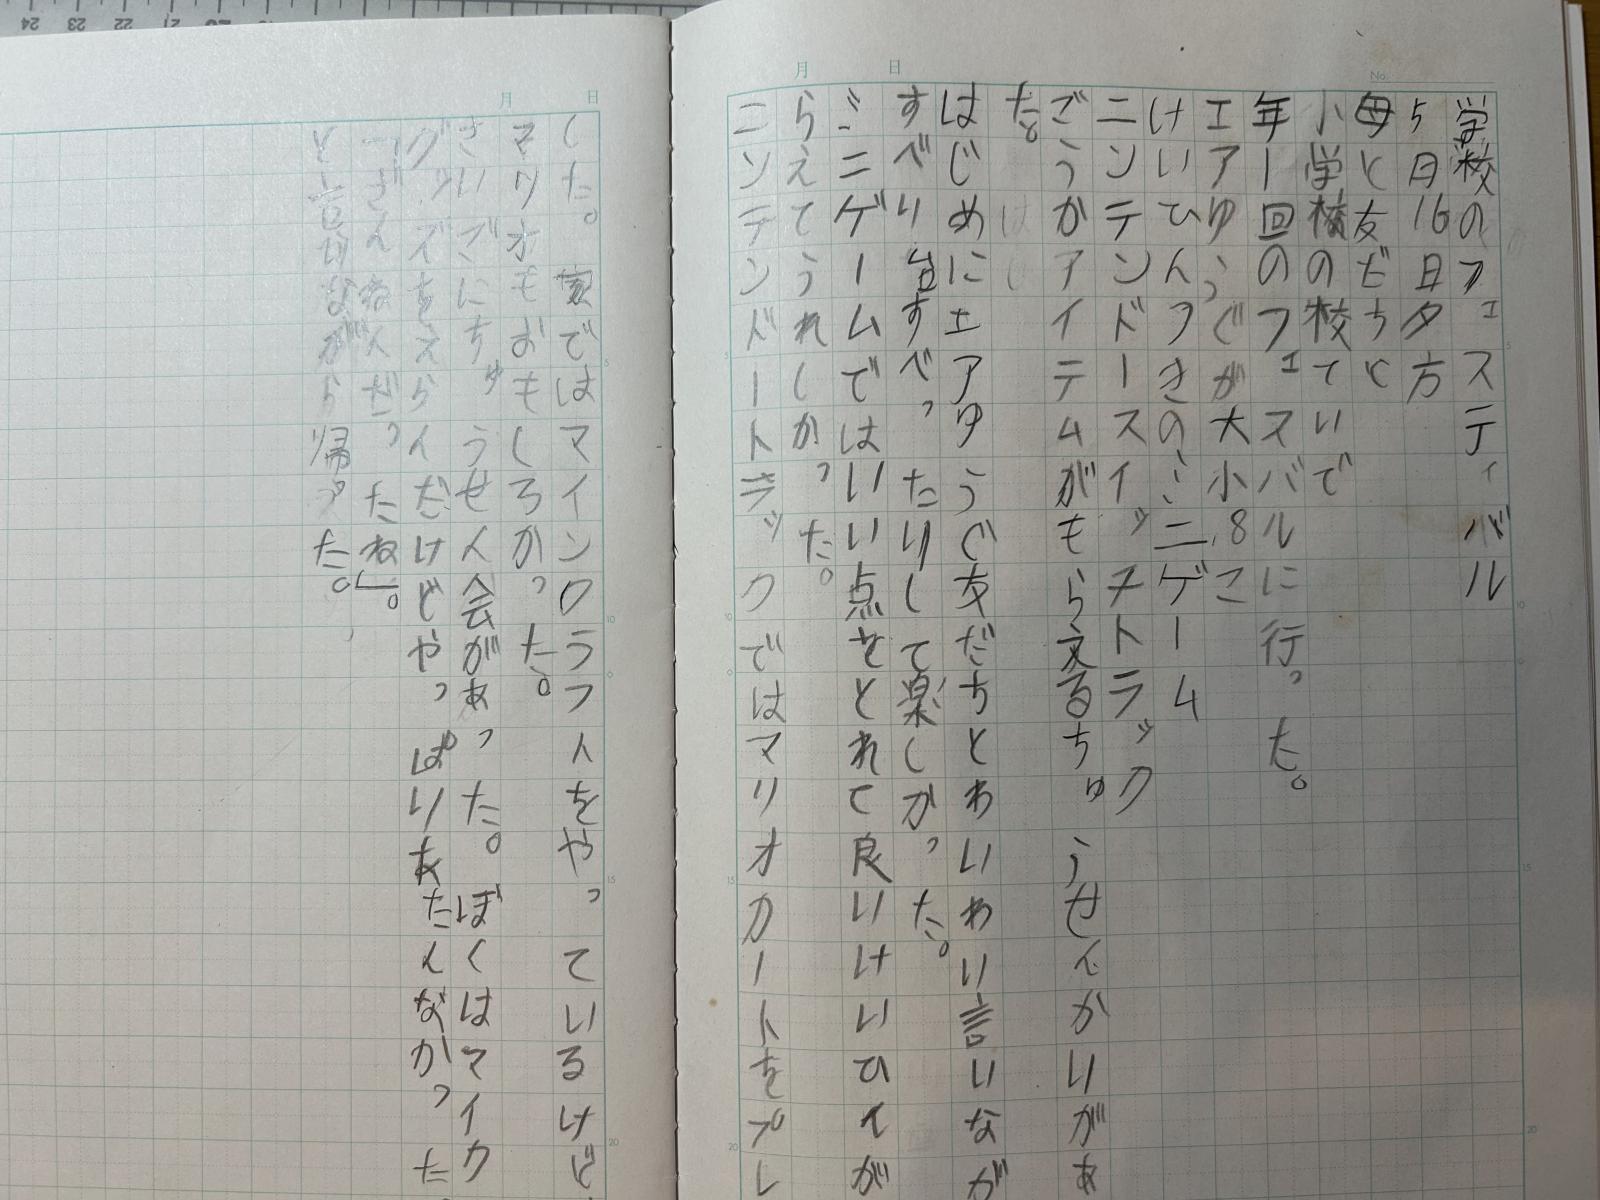 学校のフェスティバル
5月16日夕方
母と友だちと
小学校の校ていで
年一回のフェスバルに行った。
エアゆうぐが大小、8こ
けいひんつきのミニゲーム
ニンテンドースイッチトラック
ごうかアイテムがもらえるちゅうせんかいがあ
た。
はじめにエアゆうぐ友だちとわいわい言いなが
すべり台すべったりして楽しかった。
ミニゲームではいい点をとれて良いけいひんが
らえてうれしかった。
ニンテンドートラックではマリオカートをプレ
した。家ではマインクラフトをやっているけど
マリオもおもしろかった。
さいごにちゅうせん会があった。ぼくはマイク
グッズをえらんだけどやっぱりあたんなかった。
「ざんねんだったね」。
と言いながら帰った。
No.
月 日
月 日
5
10
15
20
5
10
15
20
20 21 22 23 24